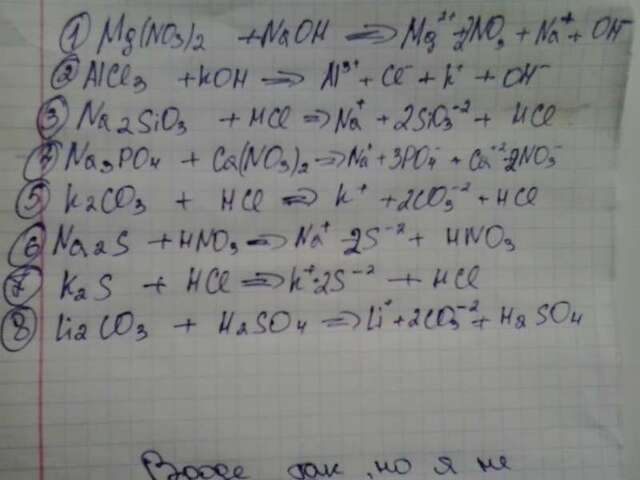 ① Mg(NO3)2 + NaOH ⇒ Mg²⁺ 2NO3 + Na⁺ + OH⁻
② AlCl3 + KOH ⇒ Al³⁺ + Cl⁻ + K⁺ + OH⁻
③ Na2SiO3 + HCl ⇒ Na⁺ + 2SiO3⁻² + HCl
④ Na3PO4 + Ca(NO3)2 ⇒ Na⁺ + 3PO4⁻ + Ca⁻² 2NO3⁻
⑤ K2CO3 + HCl ⇒ K⁺ + 2CO3⁻² + HCl
⑥ Na2S + HNO3 ⇒ Na⁺ 2S⁻² + HNO3
⑦ K2S + HCl ⇒ K⁺ 2S⁻² + HCl
⑧ Li2CO3 + H2SO4 ⇒ Li⁺ + 2CO3⁻² + H2SO4
Вроде так, но я не